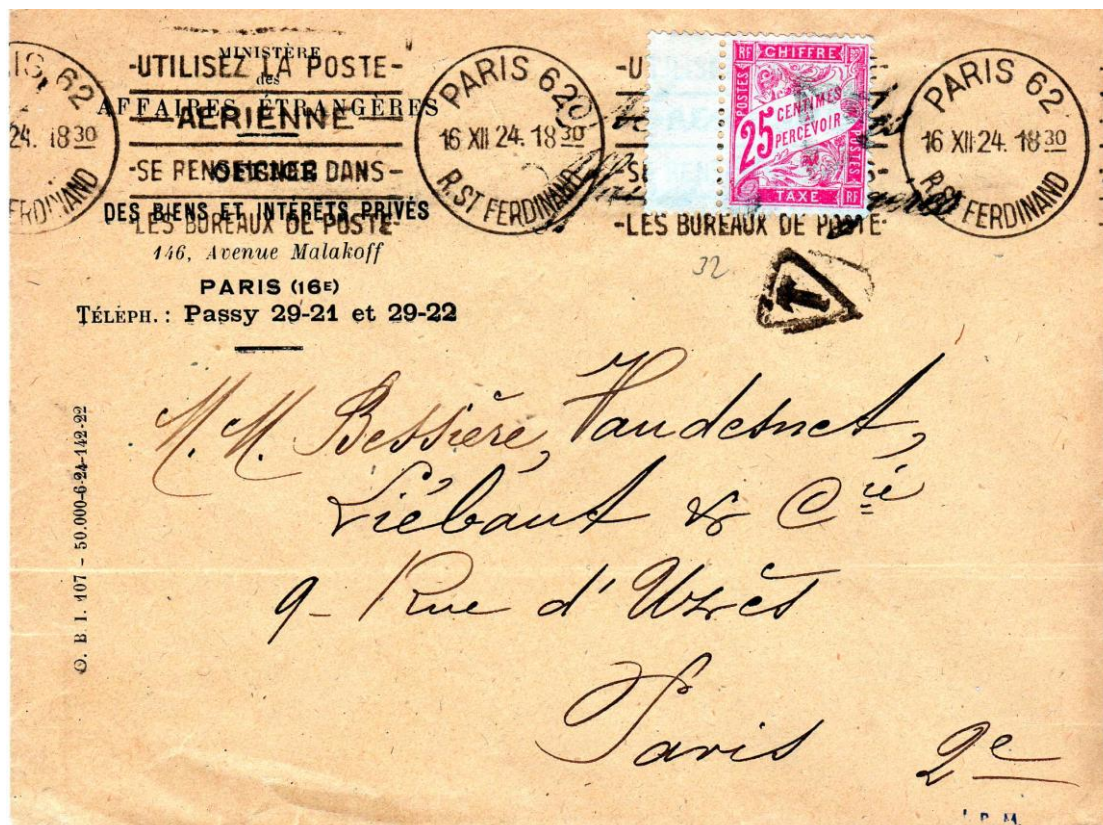 MINISTÈRE
des
AFFAIRES ÉTRANGÈRES
OFFICE
DES BIENS ET INTÉRÊTS PRIVÉS
146, Avenue Malakoff
PARIS (16E)
TÉLÉPH. : Passy 29-21 et 29-22
-UTILISEZ LA POSTE-
AERIENNE
-SE RENSEIGNER DANS-
-LES BUREAUX DE POSTE-
PARIS 62
16 XII 24. 18 30
R. ST FERDINAND
-LES BUREAUX DE POSTE-
PARIS 62
16 XII 24. 18 30
R. ST FERDINAND
24. 18 30
RF CHIFFRE
POSTES
25 CENTIMES
A PERCEVOIR
POSTES
TAXE RF
32
T
O. B. I. 107 - 50.000-6-24-142-22
M. M. Bessière, Vaudesnet,
Liébaut & Cie
9 - Rue d'Uzès
Paris 2e